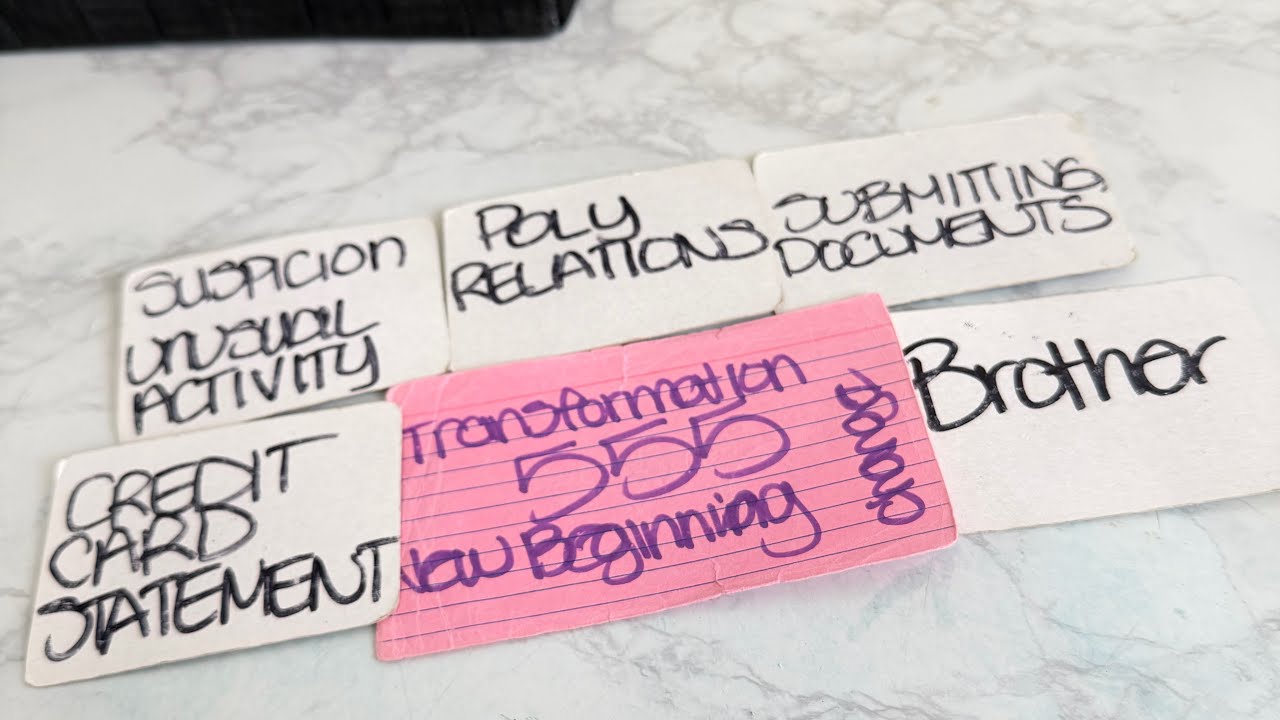 SUSPICION
UNUSUAL
ACTIVITY
POLY
RELATIONS
SUBMITTING
DOCUMENTS
CREDIT
CARD
STATEMENT
Transformation
555
New Beginning
change
Brother